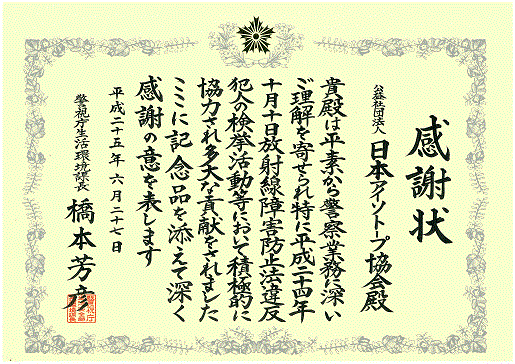 感謝状
公益社団法人 日本アイソトープ協会殿
貴殿は平素から警察業務に深い
ご理解を寄せられ特に平成二十四年
十月十日放射線障害防止法違反
犯人の検挙活動等において積極的に
協力され多大な貢献をされました
ここに記念品を添えて深く
感謝の意を表します
平成二十五年六月二十七日
警視庁生活環境課長 橋本芳彦